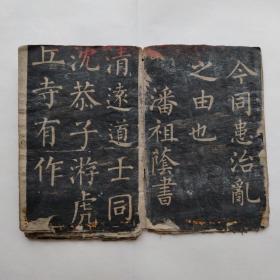 今同患治亂
之由也
潘祖蔭書
清遠道士同
沈恭子游虎
丘寺有作